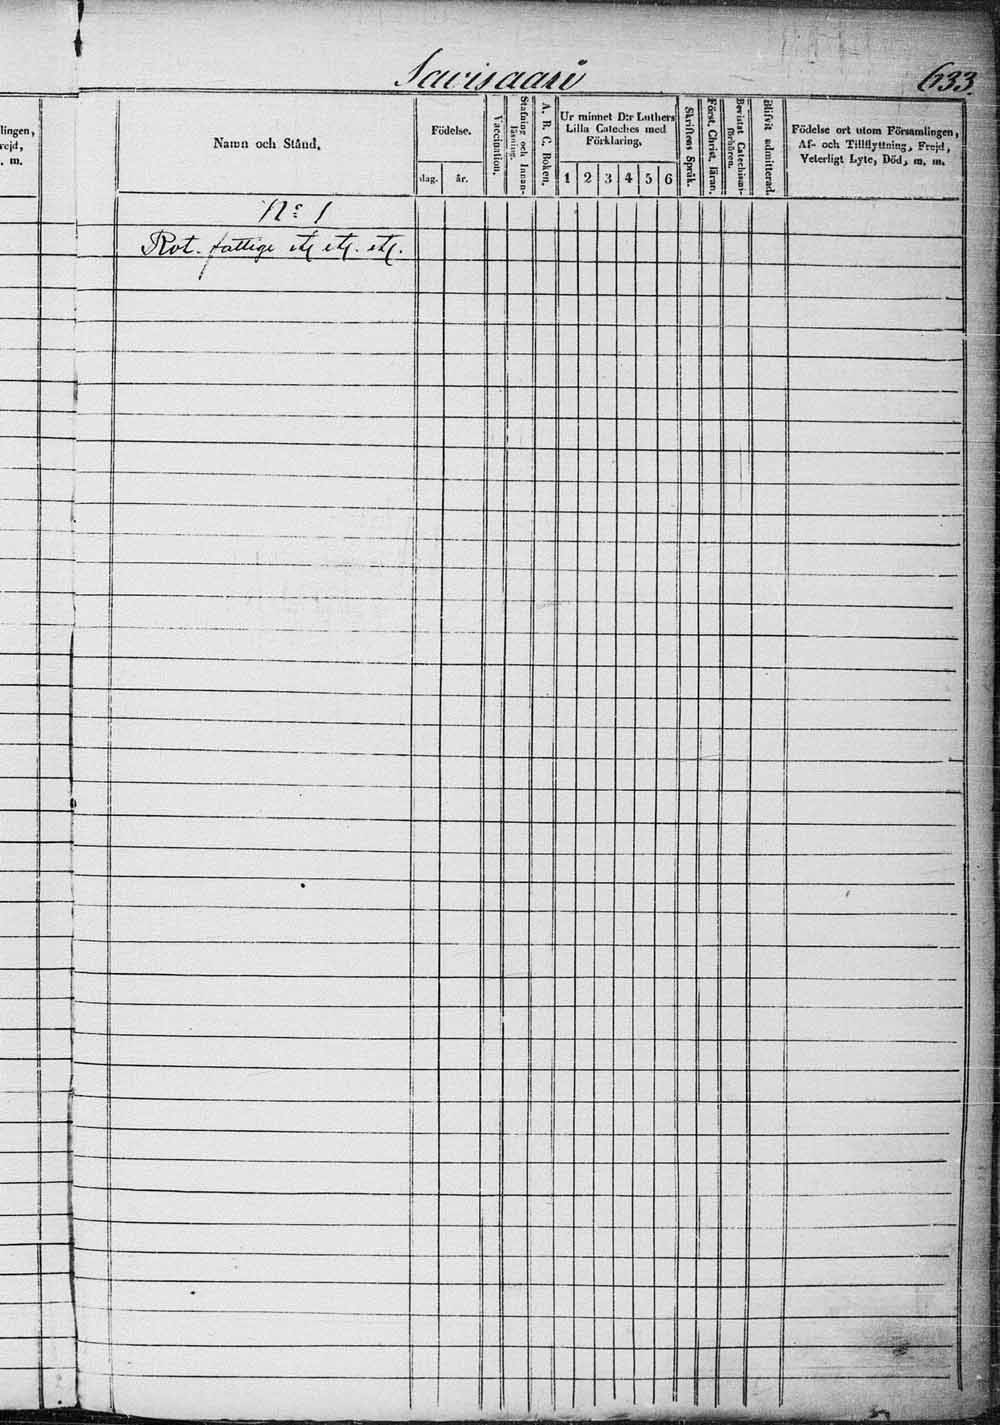 Savisaari
633.
lingen,
rejd,
. m.
Namn och Stånd.
Födelse.
dag.
år.
Vaccination.
Stafning och Innanläsning.
A. B. C. Boken.
Ur minnet D:r Luthers
Lilla Cateches med
Förklaring.
1 2 3 4 5 6
Skriftens Språk.
Först. Christ. läran.
Bevistat Catechismi-
förhören.
Blifvit admitterad.
Födelse ort utom Församlingen,
Af- och Tillflyttning, Frejd,
Veterligt Lyte, Död, m. m.
No 1
Rot. fattige etc etc. etc.